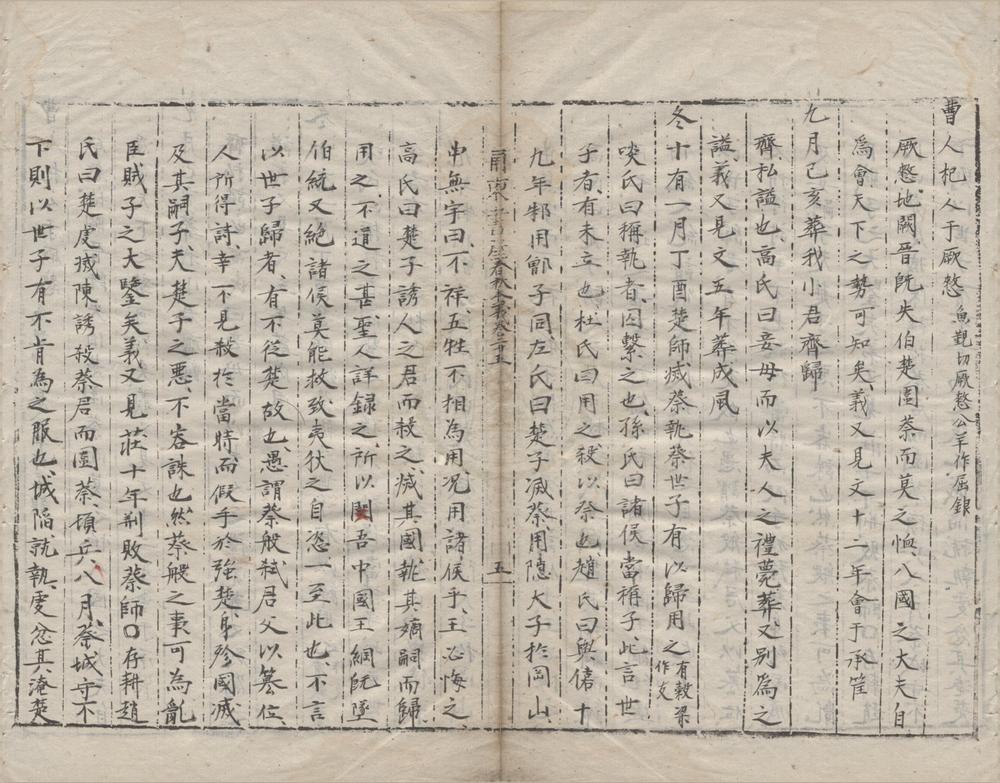 曹人杞人于厥憖魚覲切厥憖公羊作屈銀
厥憖地闕晉旣失伯楚圍蔡而莫之恤八國之大夫自
爲會天下之勢可知矣義又見文十二年會于承筐
九月己亥葬我小君齊歸
齊私謚也高氏曰妾母而以夫人之禮薨葬又别爲之
謚義又見文五年葬成風
冬十有一月丁酉楚師滅蔡執蔡世子有以歸用之有穀梁作友
啖氏曰稱執者囚繫之也孫氏曰諸侯當稱子此言世
子者有未立也杜氏曰用之殺以祭也趙氏曰與僖十
九年邾用鄫子同左氏曰楚子滅蔡用隱大子於岡山
甬東書屋春秋本義卷二十五 五
申無宇曰不祥五牲不相為用况用諸侯乎王必悔之
高氏曰楚子誘人之君而殺之滅其國執其嫡嗣而歸
用之不道之甚聖人詳録之所以閔吾中國王綱旣墜
伯統又絕諸侯莫能救致夷狄之自恣一至此也不言
以世子歸者有不從楚故也愚謂蔡般弑君父以簒位
人所得討幸不見殺於當時而假手於強楚身殄國滅
及其嗣子夫楚子之惡不容誅也然蔡般之事可為亂
臣賊子之大鑒矣義又見莊十年荆敗蔡師○存耕趙
氏曰楚虔㓕陳誘殺蔡君而圍蔡頓兵八月蔡城守不
下則以世子有不肯為之服也城陷就執虔忿其淹楚